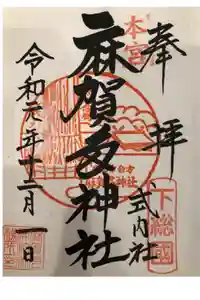 奉拝
本宮
式内社
下総國
麻賀多神社
令和元年十二月一日